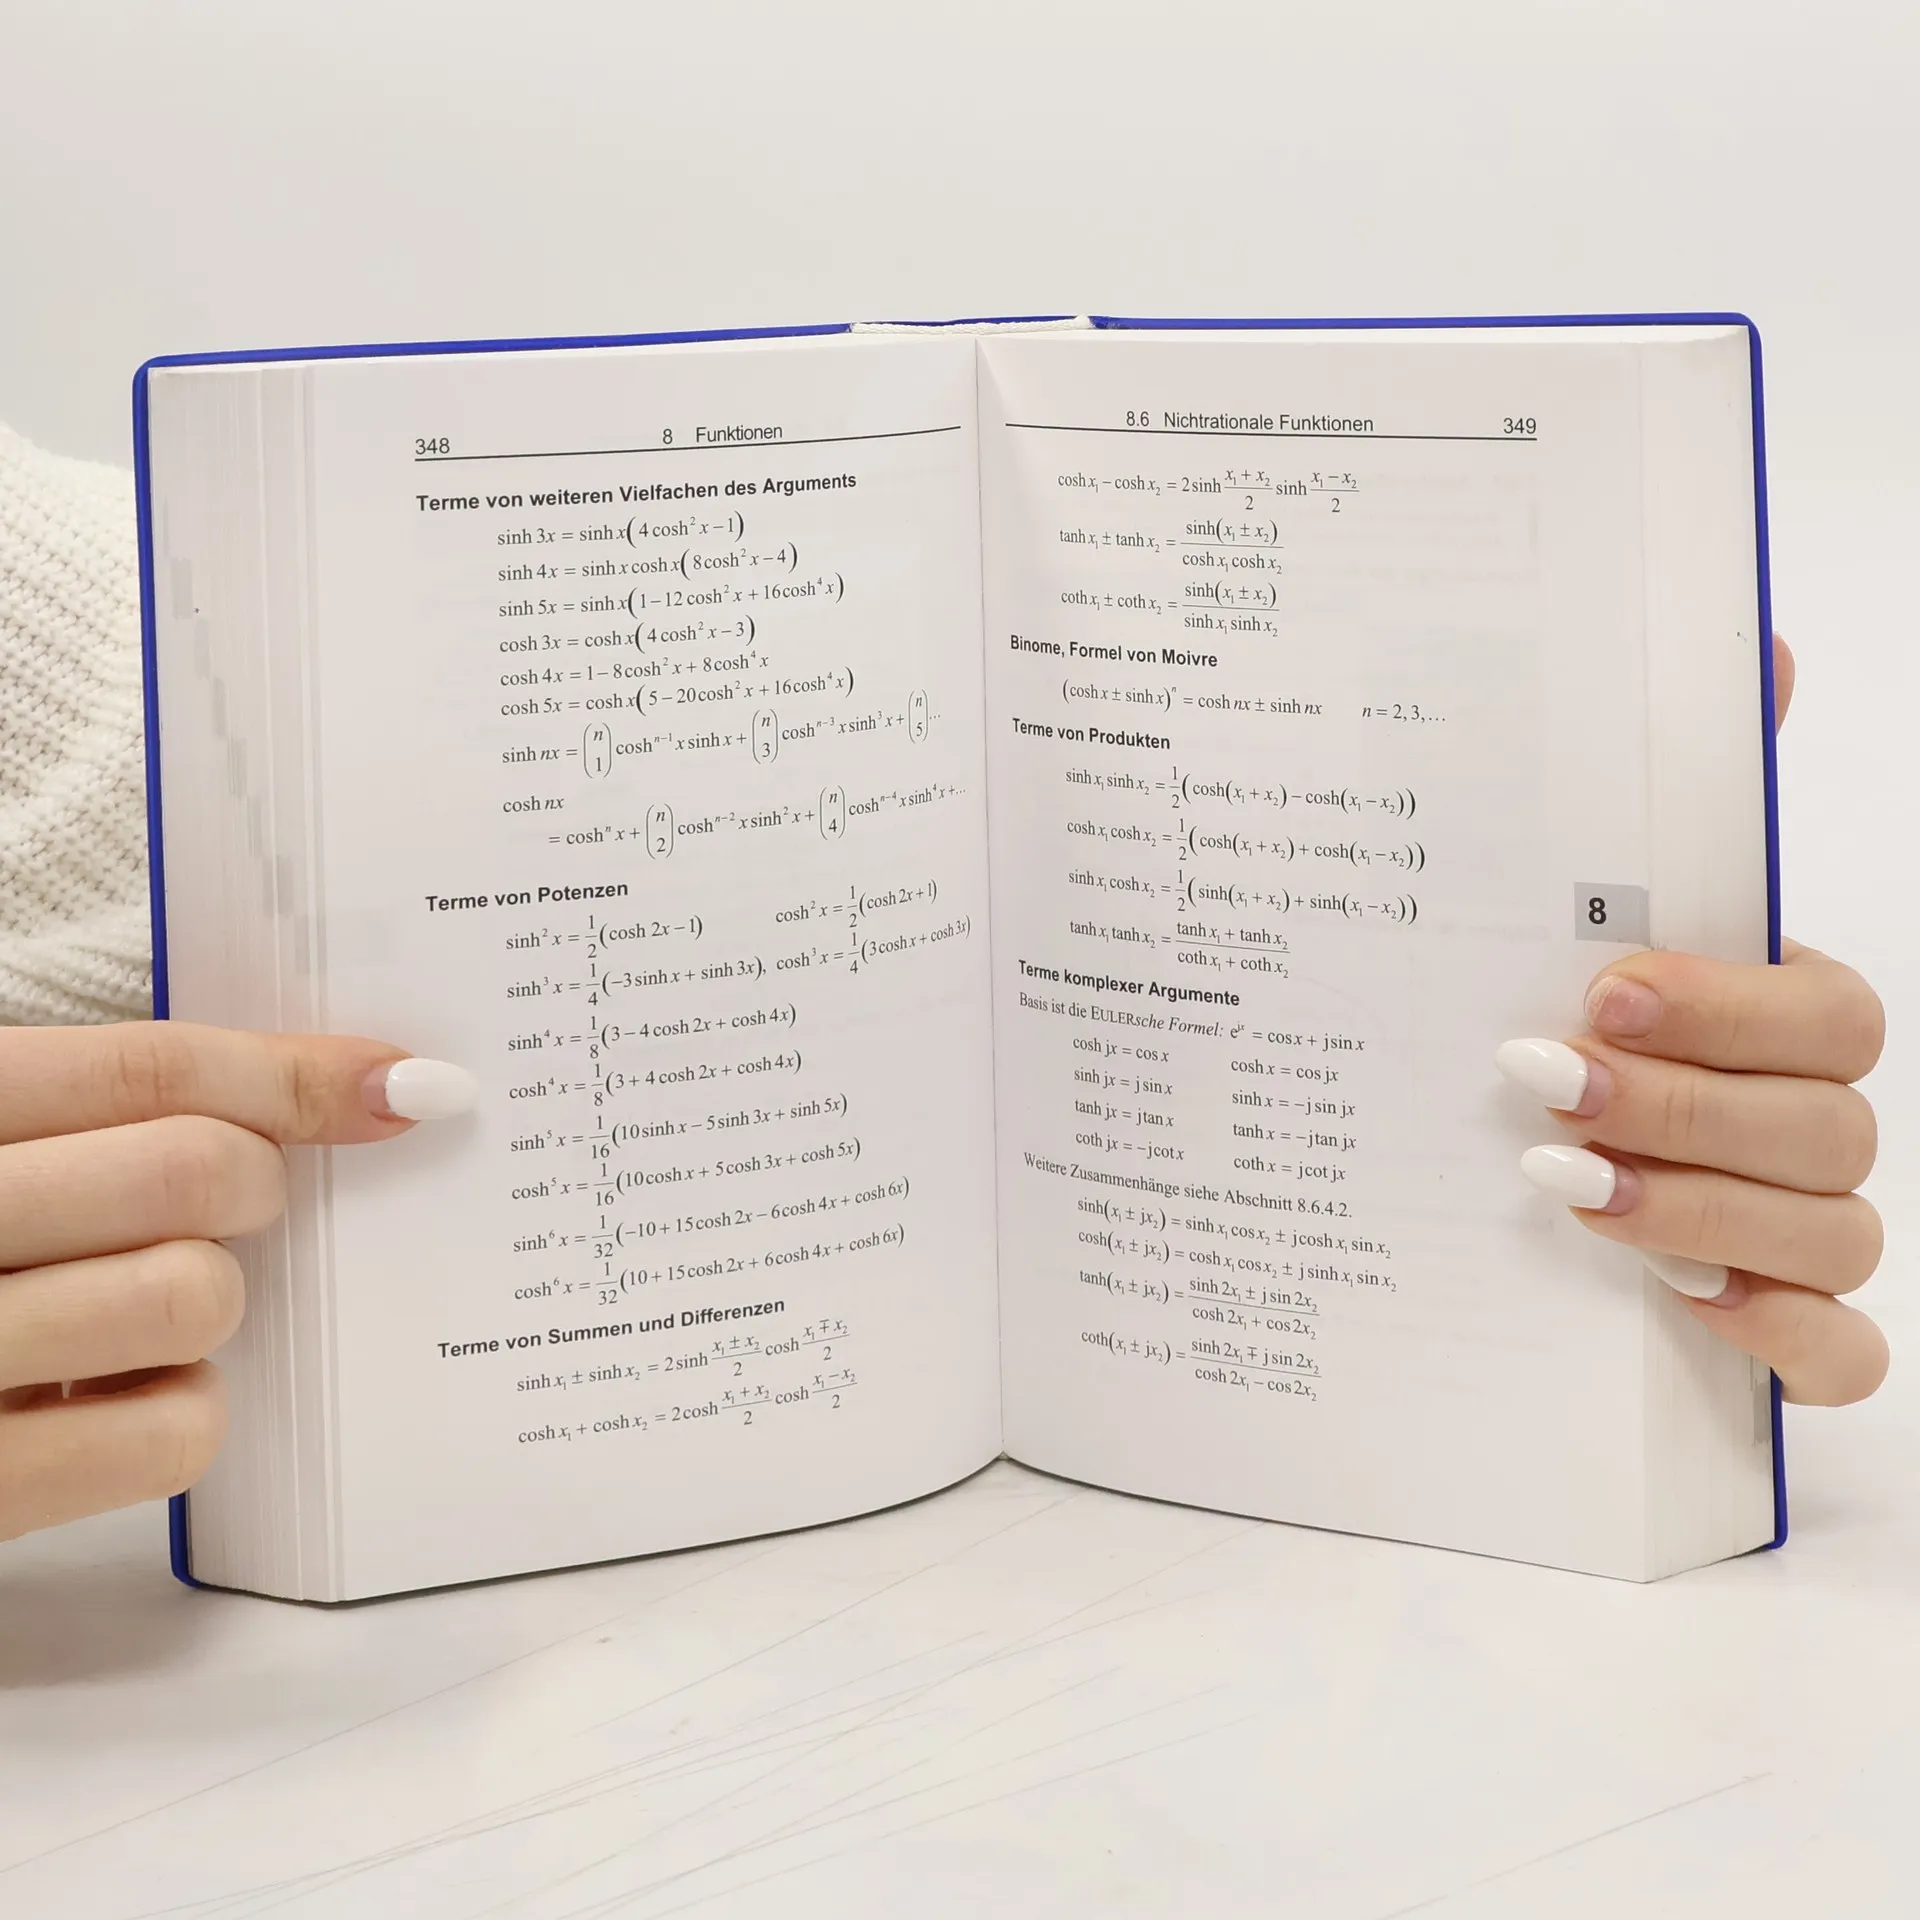 348 8 Funktionen
Terme von weiteren Vielfachen des Arguments
sinh 3x = sinh x(4 cosh² x − 1)
sinh 4x = sinh x cosh x(8 cosh² x − 4)
sinh 5x = sinh x(1 − 12 cosh² x + 16 cosh⁴ x)
cosh 3x = cosh x(4 cosh² x − 3)
cosh 4x = 1 − 8 cosh² x + 8 cosh⁴ x
cosh 5x = cosh x(5 − 20 cosh² x + 16 cosh⁴ x)
sinh nx = (n 1) coshⁿ⁻¹ x sinh x + (n 3) coshⁿ⁻³ x sinh³ x + (n 5) ...
cosh nx
= coshⁿ x + (n 2) coshⁿ⁻² x sinh² x + (n 4) coshⁿ⁻⁴ x sinh⁴ x + ...
Terme von Potenzen
sinh² x = 1/2 (cosh 2x − 1) cosh² x = 1/2 (cosh 2x + 1)
sinh³ x = 1/4 (−3 sinh x + sinh 3x), cosh³ x = 1/4 (3 cosh x + cosh 3x)
sinh⁴ x = 1/8 (3 − 4 cosh 2x + cosh 4x)
cosh⁴ x = 1/8 (3 + 4 cosh 2x + cosh 4x)
sinh⁵ x = 1/16 (10 sinh x − 5 sinh 3x + sinh 5x)
cosh⁵ x = 1/16 (10 cosh x + 5 cosh 3x + cosh 5x)
sinh⁶ x = 1/32 (−10 + 15 cosh 2x − 6 cosh 4x + cosh 6x)
cosh⁶ x = 1/32 (10 + 15 cosh 2x + 6 cosh 4x + cosh 6x)
Terme von Summen und Differenzen
sinh x₁ ± sinh x₂ = 2 sinh (x₁ ± x₂)/2 cosh (x₁ ∓ x₂)/2
cosh x₁ + cosh x₂ = 2 cosh (x₁ + x₂)/2 cosh (x₁ − x₂)/2
8.6 Nichtrationale Funktionen 349
cosh x₁ − cosh x₂ = 2 sinh (x₁ + x₂)/2 sinh (x₁ − x₂)/2
tanh x₁ ± tanh x₂ = sinh(x₁ ± x₂)/(cosh x₁ cosh x₂)
coth x₁ ± coth x₂ = sinh(x₁ ± x₂)/(sinh x₁ sinh x₂)
Binome, Formel von Moivre
(cosh x ± sinh x)ⁿ = cosh nx ± sinh nx n = 2, 3, ...
Terme von Produkten
sinh x₁ sinh x₂ = 1/2 (cosh(x₁ + x₂) − cosh(x₁ − x₂))
cosh x₁ cosh x₂ = 1/2 (cosh(x₁ + x₂) + cosh(x₁ − x₂))
sinh x₁ cosh x₂ = 1/2 (sinh(x₁ + x₂) + sinh(x₁ − x₂))
tanh x₁ tanh x₂ = (tanh x₁ + tanh x₂)/(coth x₁ + coth x₂)
8
Terme komplexer Argumente
Basis ist die EULERsche Formel: eʲˣ = cos x + j sin x
cosh jx = cos x cosh x = cos jx
sinh jx = j sin x sinh x = −j sin jx
tanh jx = j tan x tanh x = −j tan jx
coth jx = −j cot x coth x = j cot jx
Weitere Zusammenhänge siehe Abschnitt 8.6.4.2.
sinh(x₁ ± jx₂) = sinh x₁ cos x₂ ± j cosh x₁ sin x₂
cosh(x₁ ± jx₂) = cosh x₁ cos x₂ ± j sinh x₁ sin x₂
tanh(x₁ ± jx₂) = (sinh 2x₁ ± j sin 2x₂)/(cosh 2x₁ + cos 2x₂)
coth(x₁ ± jx₂) = (sinh 2x₁ ∓ j sin 2x₂)/(cosh 2x₁ − cos 2x₂)